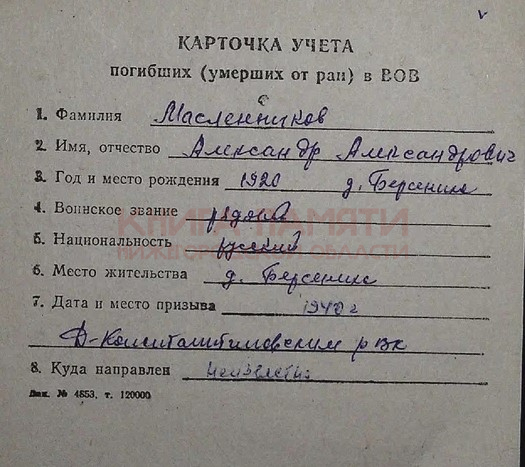 КАРТОЧКА УЧЕТА
погибших (умерших от ран) в ВОВ
1. Фамилия Масленников
2. Имя, отчество Александр Александрович
3. Год и место рождения 1920 д. Берсениха
4. Воинское звание рядовой
5. Национальность русский
КНИГА ПАМЯТИ
НИЖЕГОРОДСКОЙ ОБЛАСТИ
6. Место жительства д. Берсениха
7. Дата и место призыва 1940 г
Д-Константиновским рвк
8. Куда направлен неизвестно
Зак. № 4553, т. 120000